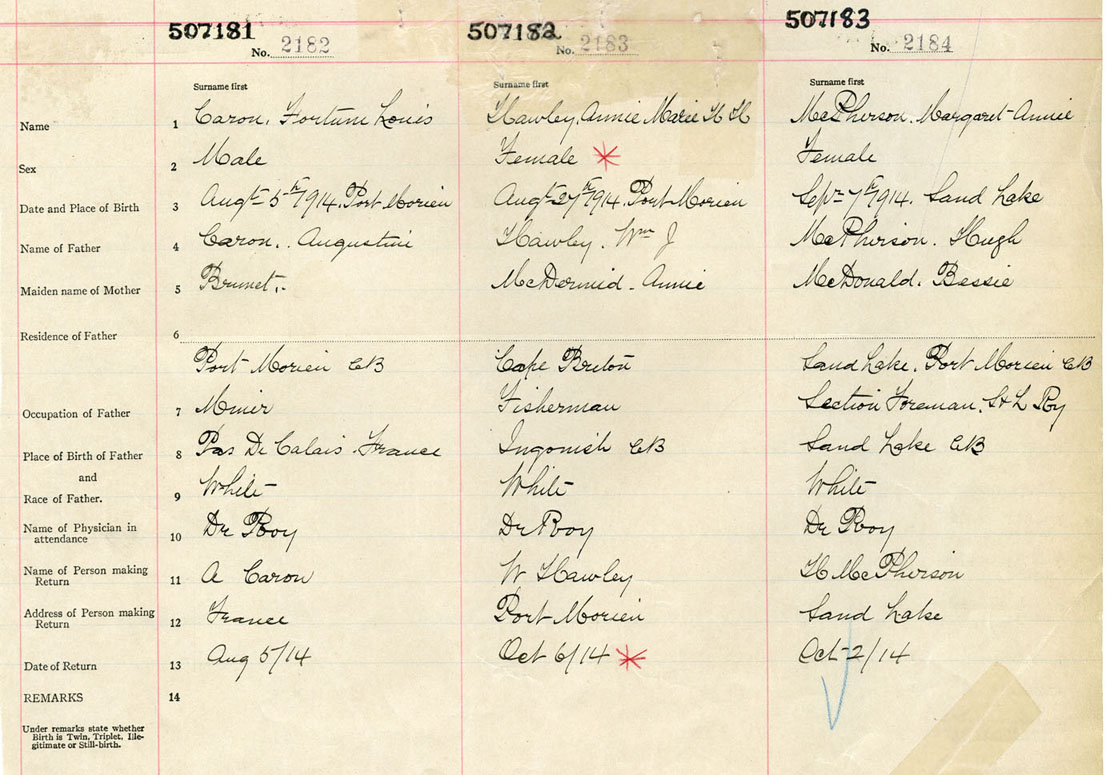 507181 507182 507183
No. 2182 No. 2183 No. 2184
Surname first Surname first Surname first
Name 1 Caron, Fortune Louis Hawley, Annie Marie H H McPherson, Margaret Annie
Sex 2 Male Female * Female
Date and Place of Birth 3 Augt 5th 1914. Port Morien Augt 27th 1914. Port Morien Sept 7th 1914. Sand Lake
Name of Father 4 Caron, Augustine Hawley, Wm J McPherson, Hugh
Maiden name of Mother 5 Brunet, McDermid - Annie McDonald, Bessie
Residence of Father 6
Port Morien CB Cape Breton Sand Lake, Port Morien CB
Occupation of Father 7 Miner Fisherman Section Foreman, S & L Ry
Place of Birth of Father 8 Pas De Calais France Ingonish CB Sand Lake CB
and
Race of Father. 9 White White White
Name of Physician in
attendance 10 Dr Roy Dr Roy Dr Roy
Name of Person making
Return 11 A Caron W Hawley H McPherson
Address of Person making
Return 12 France Port Morien Sand Lake
Date of Return 13 Aug 5/14 Oct 6/14 * Oct 2/14
REMARKS 14
Under remarks state whether
Birth is Twin, Triplet, Ille-
gitimate or Still-birth.